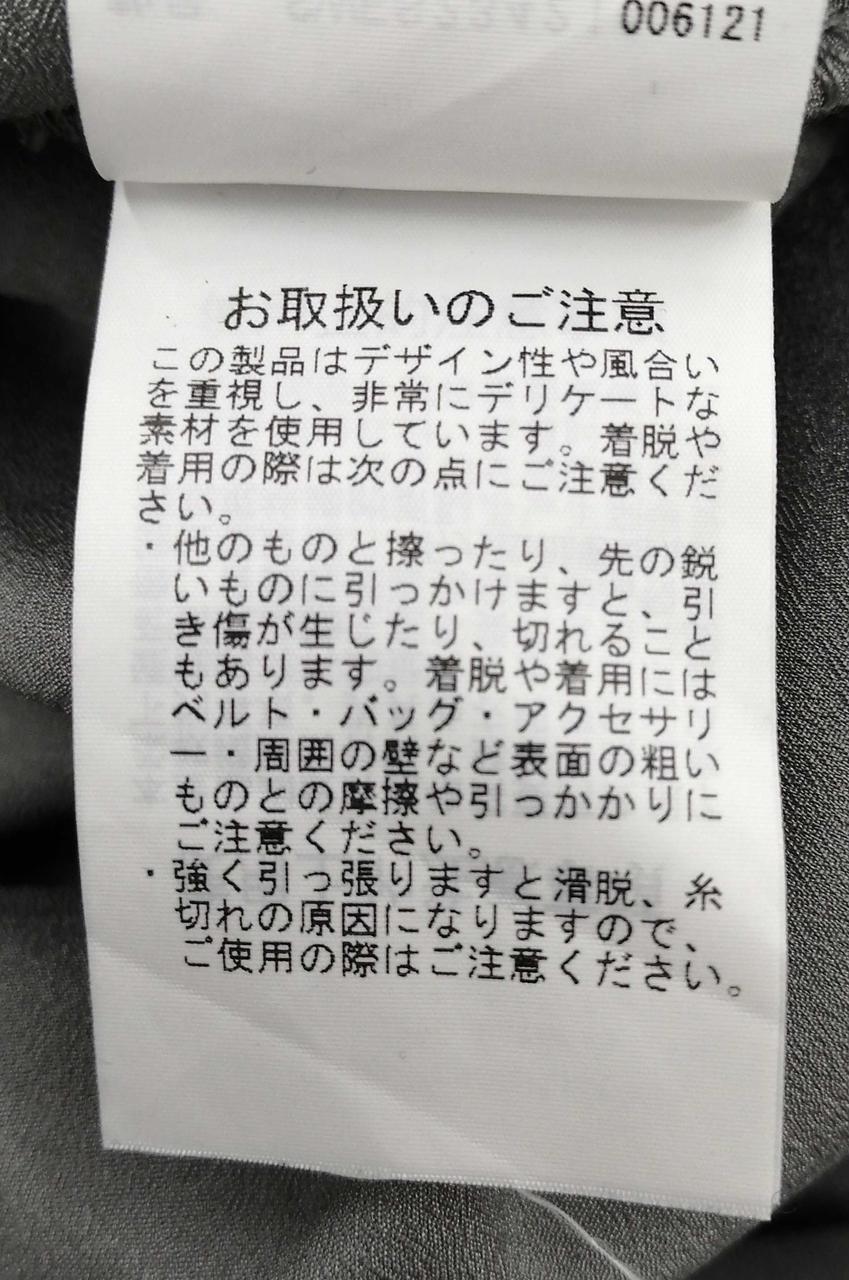 006121
お取扱いのご注意
この製品はデザイン性や風合い
を重視し、非常にデリケートな
素材を使用しています。着脱や
着用の際は次の点にご注意くだ
さい。
・他のものと擦ったり、先の鋭
いものに引っかけますと、引
き傷が生じたり、切れること
もあります。着脱や着用には
ベルト・バッグ・アクセサリ
ー・周囲の壁など表面の粗い
ものとの摩擦や引っかかりに
ご注意ください。
・強く引っ張りますと滑脱、糸
切れの原因になりますので、
ご使用の際はご注意ください。